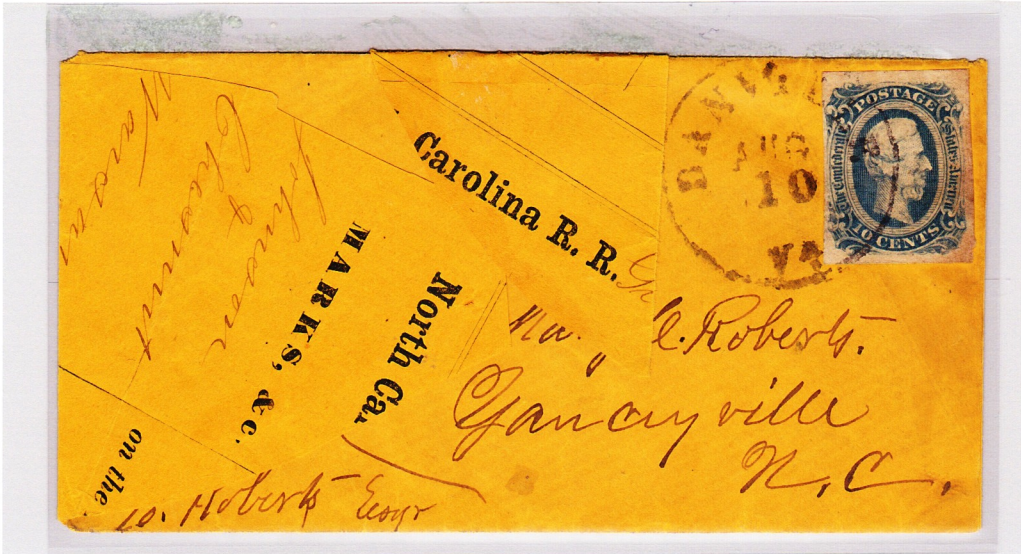 DANVILLE
AUG
10
VA.
POSTAGE
The Confederate
States of America
10 CENTS
Carolina R. R.
North Ca.
MARKS, &c.
on the
Johnson
&
C. Roberts.
Yanceyville
N. C.
Roberts Esqr